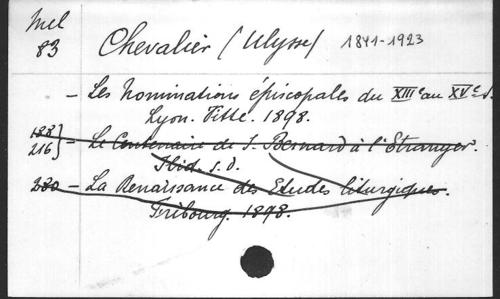 Mel
83
Chevalier (Ulysse) 1841-1923
- Les Nominations épiscopales du XIIIe au XVe s.
Lyon. Vitte. 1898.
188
216} - Le Centenaire de S. Bernard à l'Etranger.
Ibid. s.d.
280 - La Renaissance des Etudes liturgiques.
Fribourg. 1898.